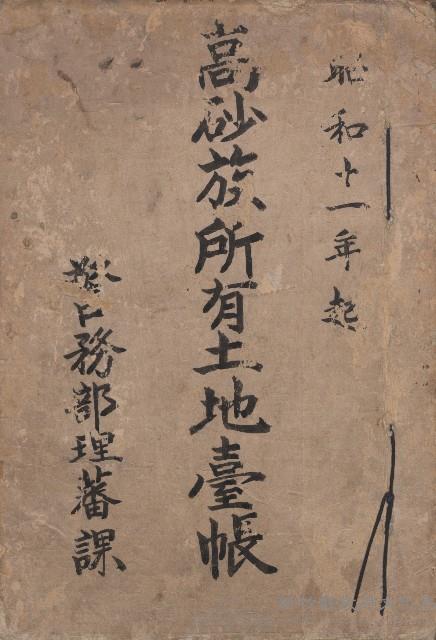 昭和十一年起
高砂族所有土地臺帳
警務部理蕃課